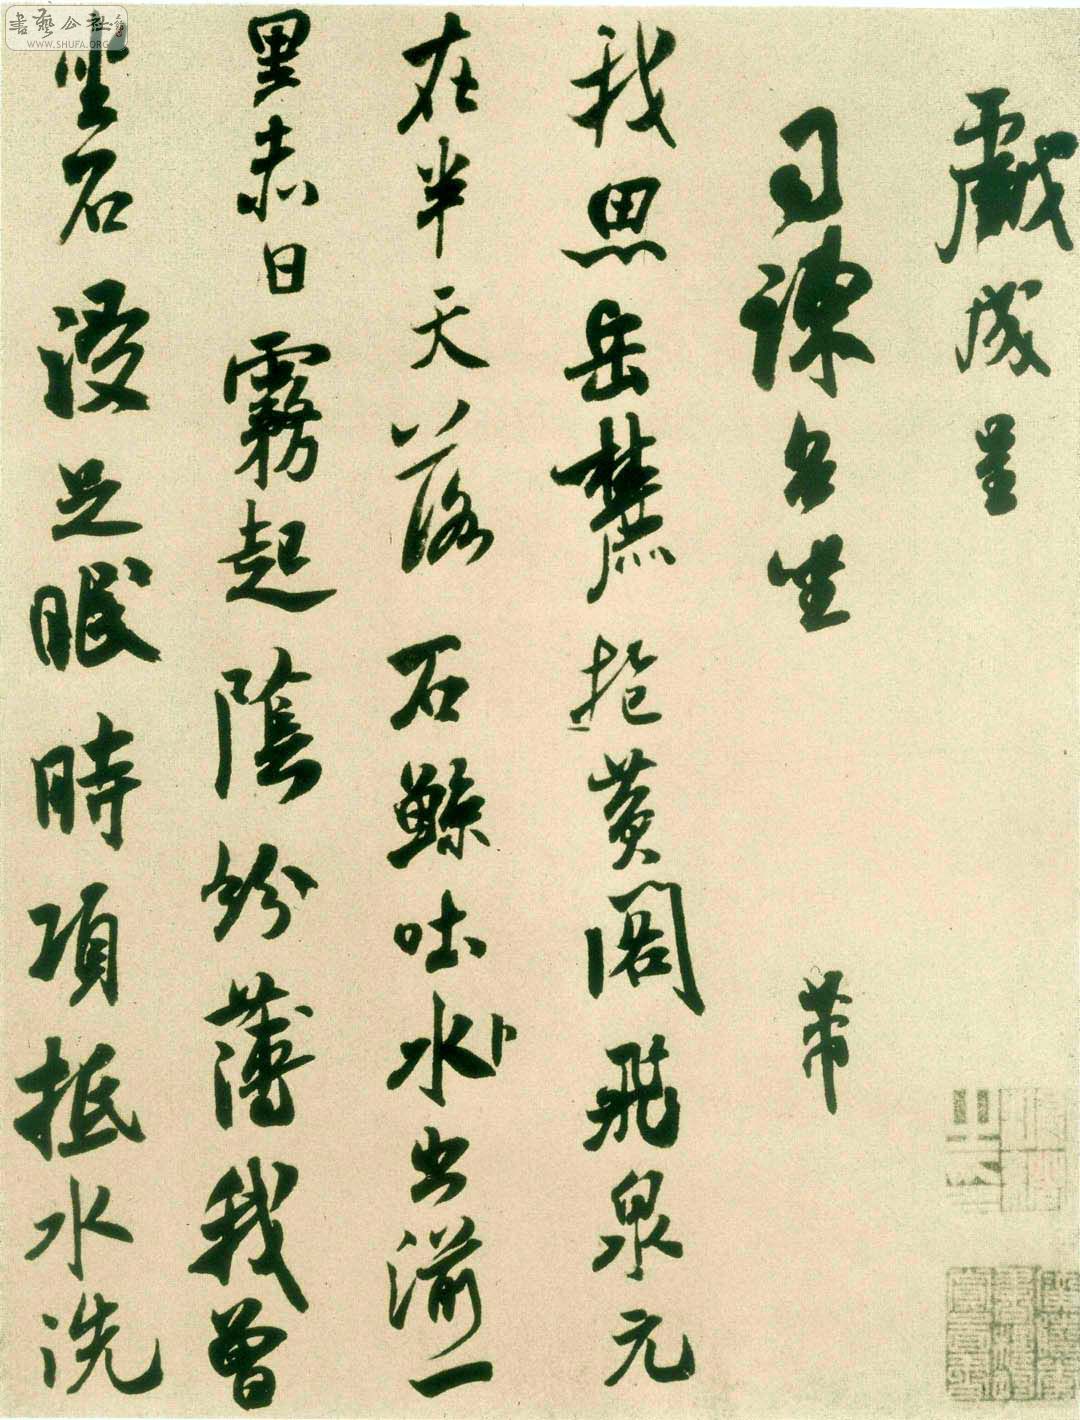 戲成呈
司諫台坐
芾
我思岳麓抱黃閣飛泉元
在半天落石鯨吐水卜出湔一
里赤日霧起陰紛薄我曾
坐石浸足眠時項抵水洗
書藝公社
WWW.SHUFA.ORG